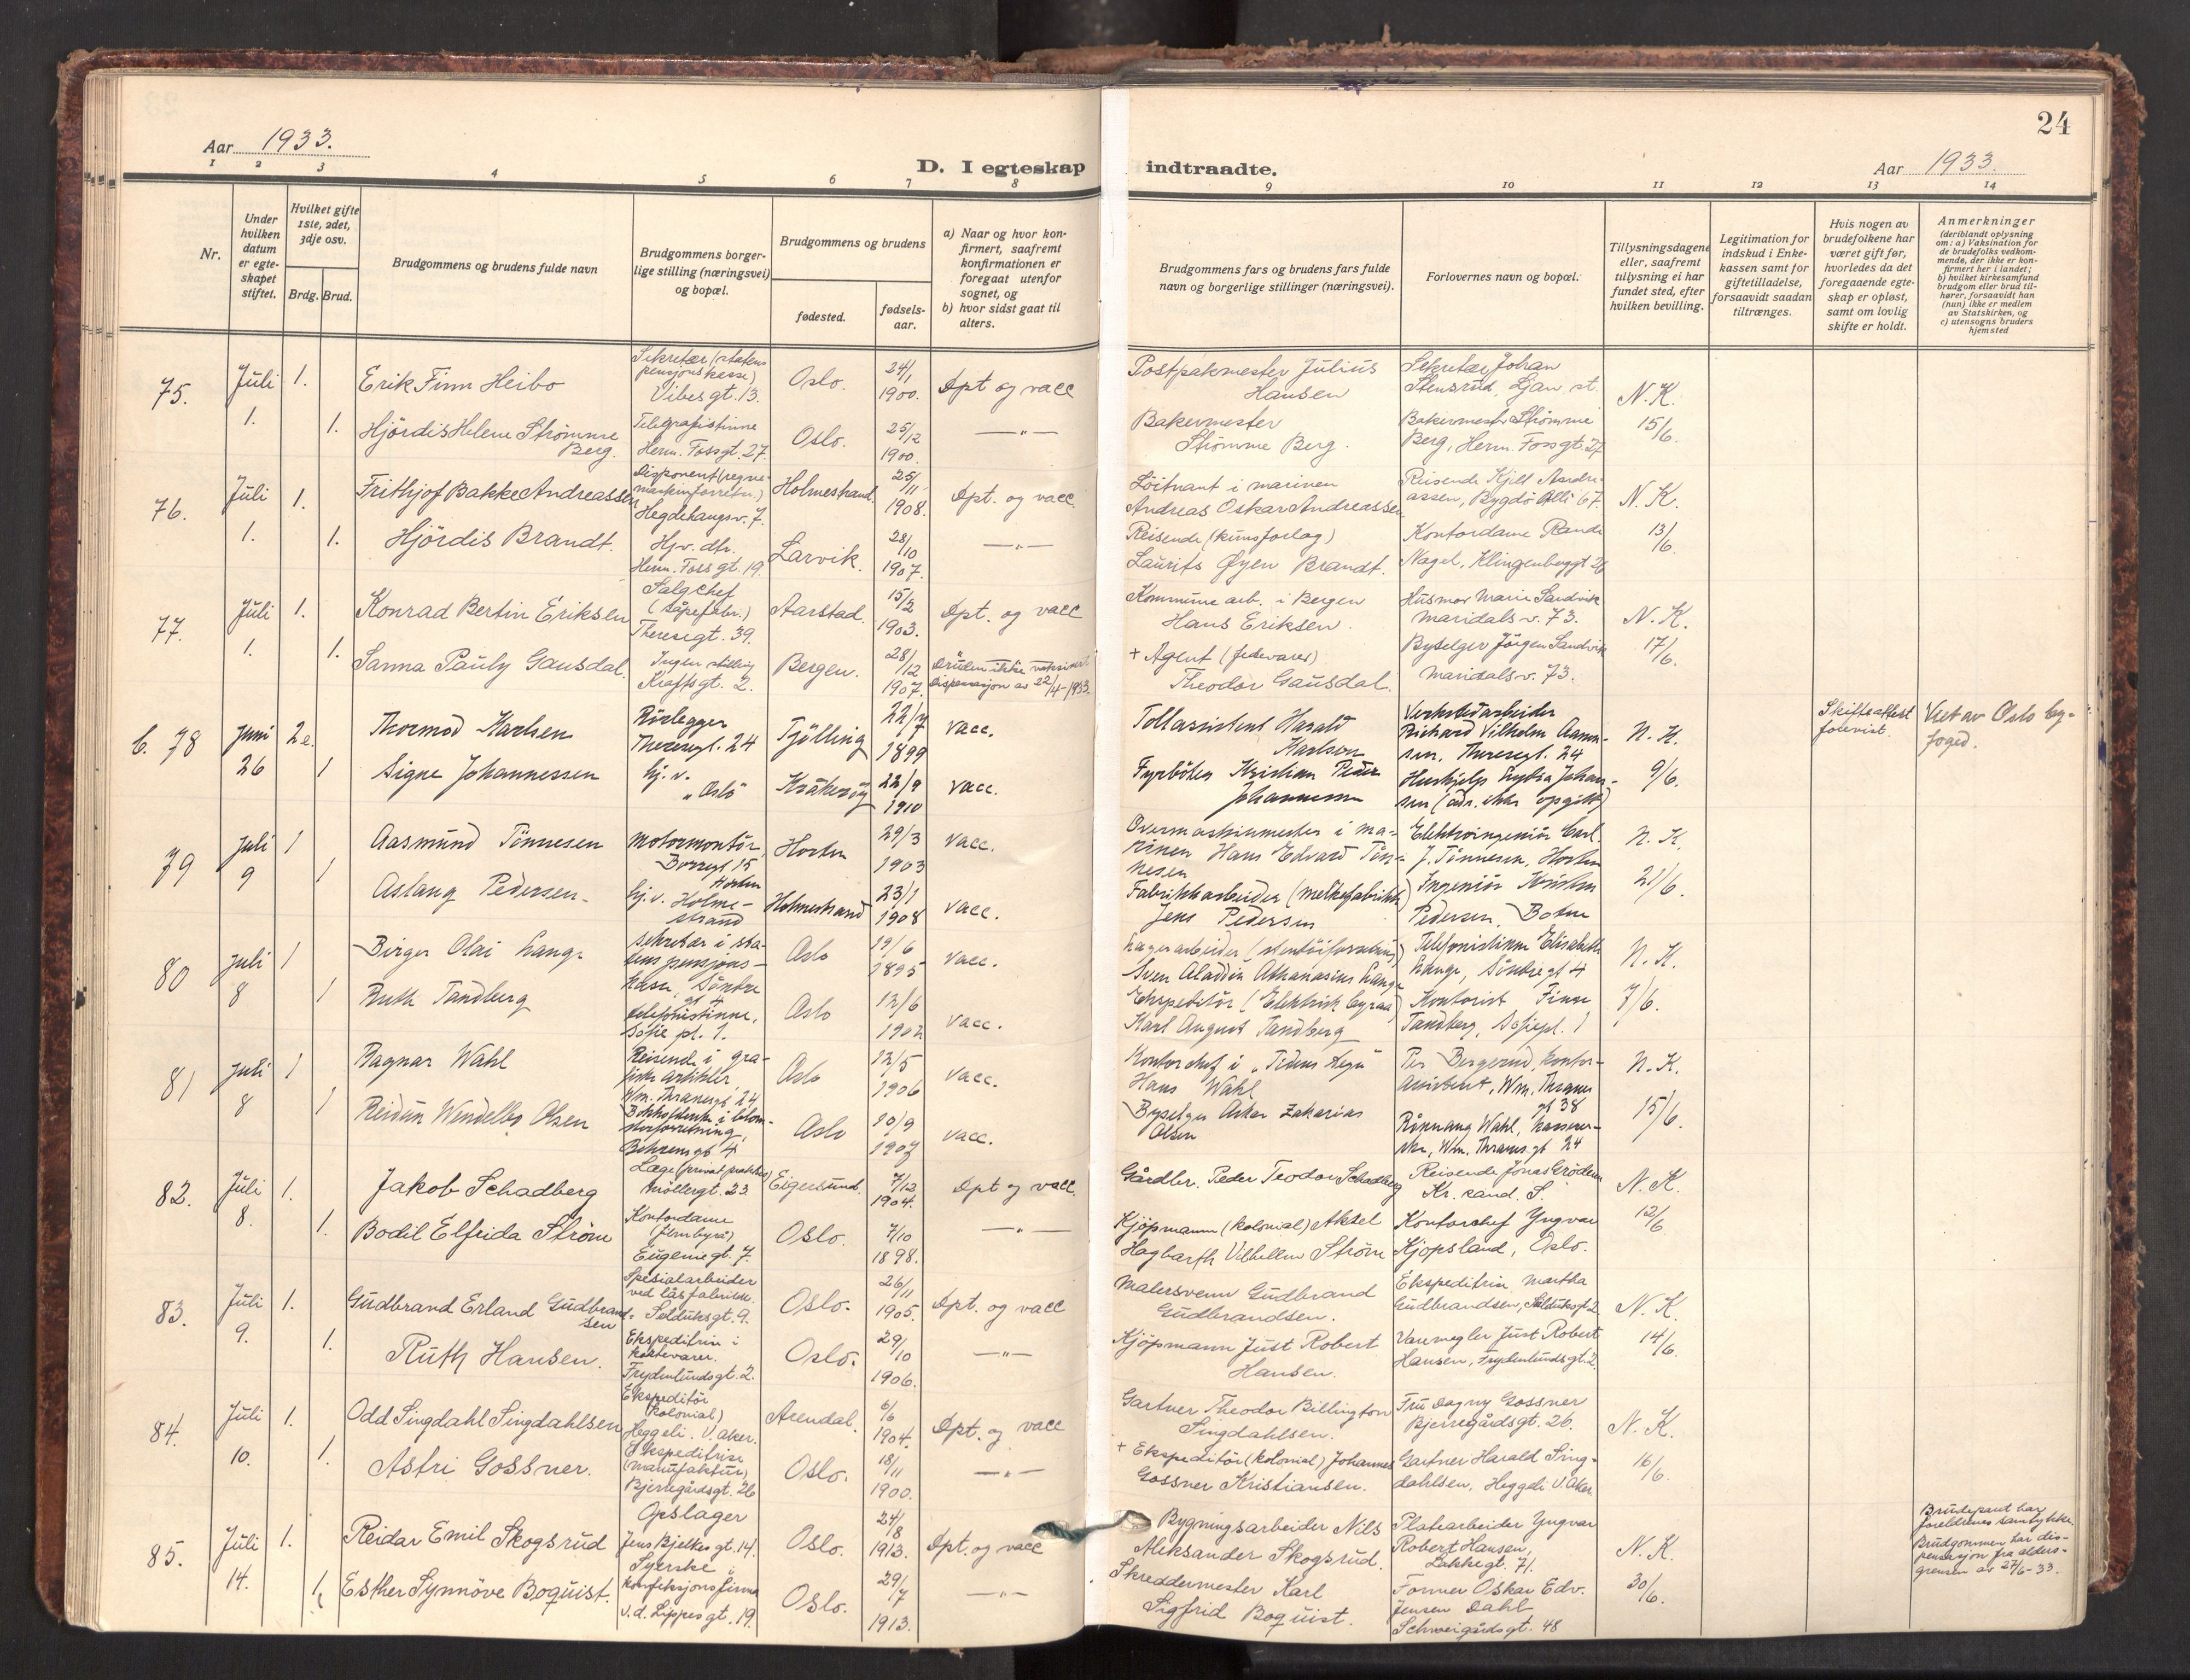 24
Aar 1933.
D. I egteskap indtraadte.
Aar 1933.
1 2 3 4 5 6 7 8 9 10 11 12 13 14
Nr.
Under hvilken datum er egteskapet stiftet.
Hvilket gifte 1ste, 2det, 3dje osv.
Brdg. Brud.
Brudgommens og brudens fulde navn
Brudgommens borgerlige stilling (næringsvei) og bopæl.
Brudgommens og brudens
fødested.
fødselsaar.
a) Naar og hvor konfirmert, saafremt konfirmationen er foregaat utenfor sognet, og
b) hvor sidst gaat til alters.
Brudgommens fars og brudens fars fulde navn og borgerlige stillinger (næringsvei).
Forlovernes navn og bopæl.
Tillysningsdagene eller, saafremt tillysning ei har fundet sted, efter hvilken bevilling.
Legitimation for indskud i Enkekassen samt for giftetilladelse, forsaavidt saadan tiltrænges.
Hvis nogen av brudefolkene har været gift før, hvorledes da det foregaaende egteskap er opløst, samt om lovlig skifte er holdt.
Anmerkninger
(deriblandt oplysning om: a) Vaksination for de brudefolks vedkommende, der ikke er konfirmert her i landet; b) hvilket kirkesamfund brudgom eller brud tilhører, forsaavidt han (hun) ikke er medlem av Statskirken, og c) utensogns bruders hjemsted
75. Juli 1. 1. Erik Finn Heibo Sekretær (statens pensjonskasse) Vibesgt. 13. Oslo. 24/1 1900. Dpt og vacc Postpakmester Julius Hansen Sekretær Johan Stensrud, Ljan st. N. K.
1. Hjördis Helene Strømme Berg. Telegrafistinne Herm. Fossgt. 27. Oslo. 25/12 1900. —"— Bakermester Strømme Berg. Bakermester Strømme Berg, Herm. Fossgt. 27 15/6.
76. Juli 1. 1. Frithjof Bakke Andreassen Disponent (regnemaskinforretn.) Hegdehaugsv. 7. Holmestrand. 25/11 1908. Dpt. og vacc. Löitnant i marinen Andreas Oskar Andreassen Reisende Kjell Andreassen, Bygdö Allé 67. N. K.
1. Hjördis Brandt. Hjv. dtr. Herm. Foss gt. 19. Larvik. 28/10 1907. —"— Reisende (kunsforlag) Laurits Øyen Brandt. Kontordame Nagel, Klingenberggt 26 13/6.
77. Juli 1. 1. Konrad Bertin Eriksen Salgchef (Såpeforr.) Theresgt. 39. Aarstad. 15/2 1903. Dpt. og vacc Kommune arb. i Bergen Hans Eriksen. Husmor Marie Sandvik Maridalsv. 73. N. K.
1. Sanna Pauly Gausdal. Ingen stilling Kraftsgt. 2. Bergen. 28/12 1907. Bruden ikke vaksinert Dispensasjon av 22/4-1933. + Agent (fedevarer) Theodor Gausdal. Byselger Jörgen Sandvik Maridalsv. 73. 17/6.
b. 78 Juni 26 2e. Thormod Karlsen Rörlegger Theresegt. 24 Tjölling 22/7 1899 vacc. Tollassistent Harald Karlsen Verkstedarbeider Richard Vilhelm Aamnsen, Theresegt. 24 N. K. Skifteattest forevist. Viet av Oslo byfoged.
1 Signe Johannessen hj. v. "Oslo" Kråkeröy 22/9 1910 vacc. Fyrböter Kristian Peder Johannessen Hushjelp Lydia Johansen (adr. ikke opgitt) 9/6.
79 Juli 9 1 Aasmund Tönnesen Motormontör, Borregt 15 Horten Horten 29/3 1903 vacc. Overmaskinmester i marinen Hans Edvard Tönnesen Elektroingeniör Carl J. Tönnesen, Horten N. K.
1 Aslaug Pedersen. hj. v. Holmestrand Holmestrand 23/1 1908 vacc. Fabrikkarbeider (melkefabrikk) Jens Pedersen Ingeniör Kristen Pedersen, Botne 21/6.
80 Juli 8 1 Birger Olai Lange Sekretær i statens pensjonskasse, Söndre gt 4 Oslo 19/6 1895 vacc. Lagerarbeider Sven Aladdin Athanasius Lange Telefonistinne Elisabeth Lange, Söndregt 4 N. K.
1 Ruth Tandberg telefonistinne, Sofie pl. 1. Oslo 12/6 1902 vacc. Ekspeditör (Elektrisk byraa) Karl August Tandberg Kontorist Finn Tandberg, Sofiepl. 1 7/6.
81 Juli 8 1 Ragnar Wahl Reisende i grafiske artikler, Wm. Thranesgt 24 Oslo 12/5 1906 vacc. Kontorchef i "Tidens Tegn" Hans Wahl Per Bergerud, kontorassistent, Wm. Thranes gt 38 N. K.
1 Reidun Wendelbo Olsen Bokholderske i blomsterforretning, Behrensgt 4 Oslo 20/9 1907 vacc. Byselger Oskar Zakarias Olsen Rönnaug Wahl, kassererske, Wm. Thranesgt 24 15/6.
82. Juli 8. 1. Jakob Schadberg Læge (privat praktis) Möllergt. 23. Eigersund. 7/12 1904. Dpt og vacc. Gårdbr. Peder Teodor Schadberg Reisende Jonas Grödem Kr. sand. S. N. K.
1. Bodil Elfrida Ström Kontordame Eugeniegt. 7. Oslo. 7/10 1898. —"— Kjöpmann (kolonial) Aksel Hagbarth Vilhellm Ström Kontorchef Yngvar Kjopsland, Oslo. 12/6
83. Juli 9. 1. Gudbrand Erland Gudbrandsen Spesialarbeider ved låsfabrikk. Seilduksgt. 9. Oslo. 26/11 1905. Dpt. og vacc Malersvenn Gudbrand Gudbrandsen. Ekspeditrise Martha Gudbrandsen, Seilduksgt 2 N. K.
1. Ruth Hansen. Ekspeditrise i kortevarer. Frydenlundsgt. 2. Oslo. 29/10 1906. —"— Kjöpmann Just Robert Hansen. Varemegler Just Robert Hansen, Frydenlundsgt. 2 14/6.
84. Juli 10. 1. Odd Singdahl Singdahlsen Ekspeditör (kolonial) Heggeli. V. Aker. Arendal. 6/6 1904. Dpt. og vacc Gartner Theodor Billington Singdahlsen. Fru Dagny Gossner Bjerregårdsgt. 26. N. K.
1. Astri Gossner. Ekspeditrise (manufaktur) Bjerregårdsgt. 26 Oslo. 18/11 1900. —"— + Ekspeditör (kolonial) Johannes Gossner Kristiansen. Gartner Harald Singdahlsen, Heggeli V. Aker 16/6.
85. Juli 14. 1. Reidar Emil Skogsrud Opslager Jens Bjelkes gt. 14. Oslo. 24/8 1913. Dpt. og vacc Bygningsarbeider Nils Aleksander Skogsrud. Platearbeider Yngvar Robert Hansen, Lakkegt. 71. N. K. Brudeparet har foreldrenes samtykke. Brudgommen har dispensasjon fra aldersgrensen av 27/6-33.
1. Esther Synnöve Boquist. Syerske i konfeksjonsfirma v. d. Lippes gt. 19. Oslo. 29/7 1913. —"— Skreddermester Karl Sigfrid Boquist. Former Oskar Edv. Jensen Dahl Schweigårdsgt. 48 30/6.